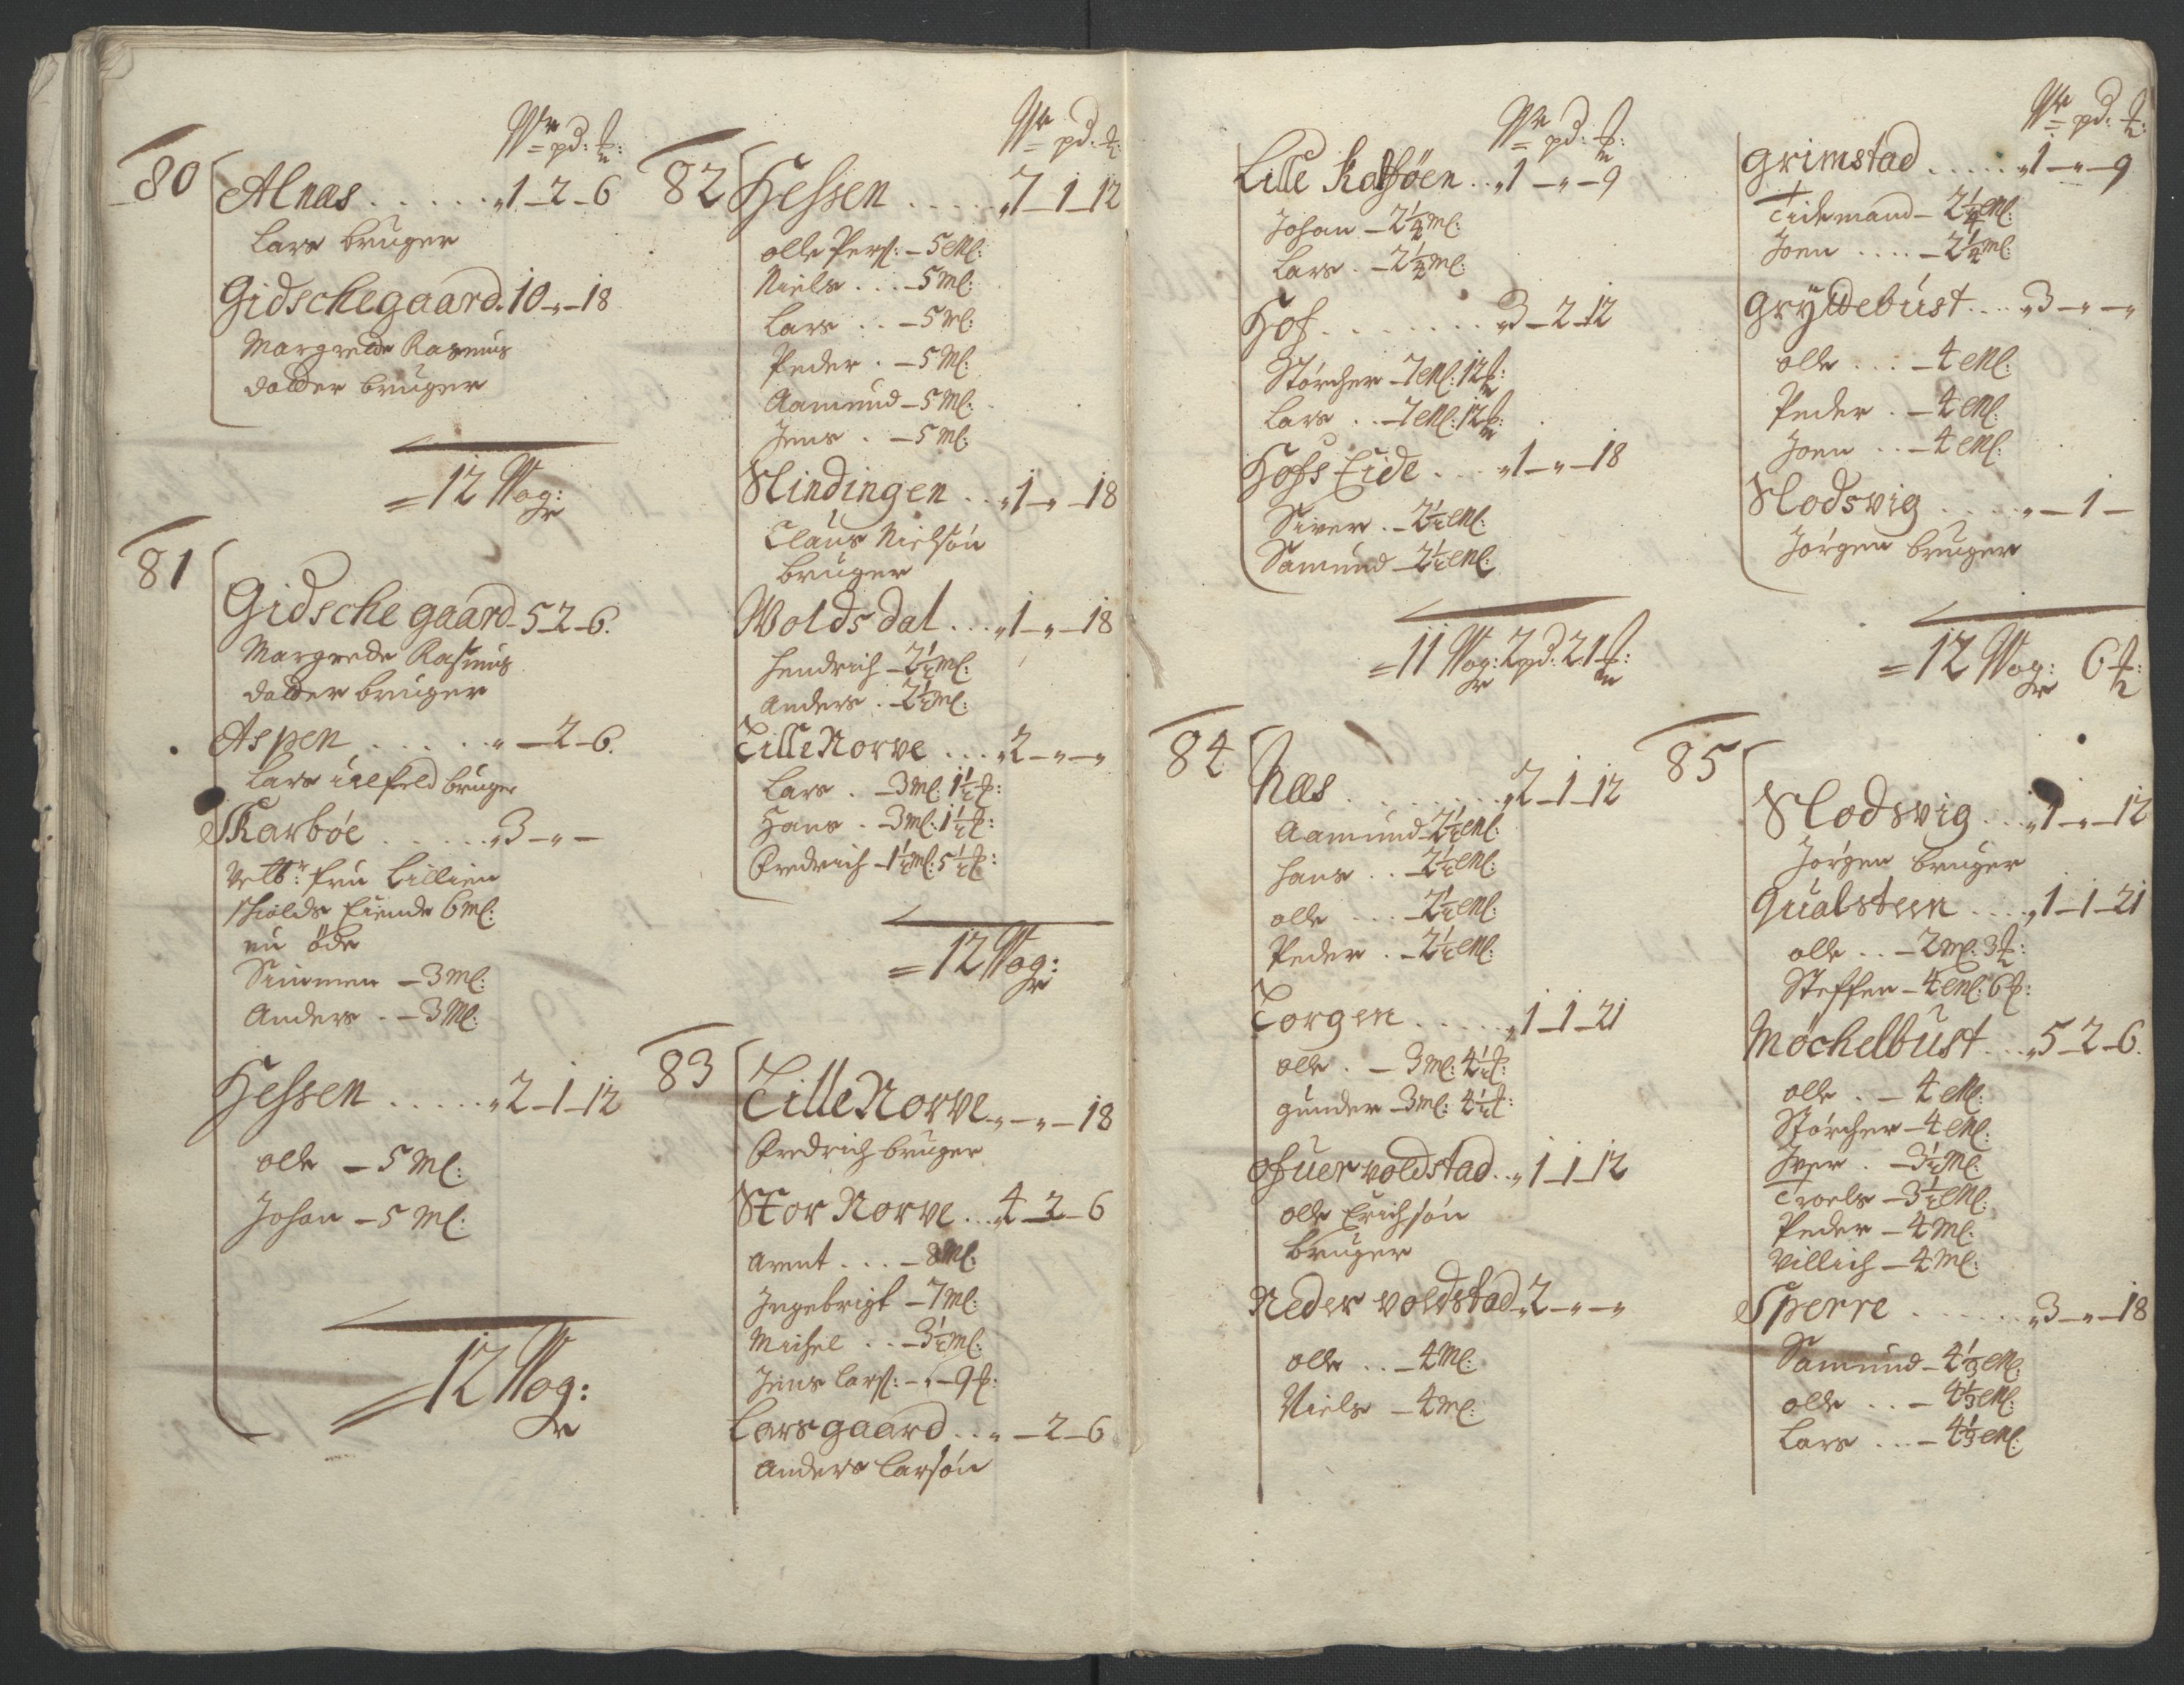 Wr pd: ℔:
80 Alnæs . . . . . . „1-2-6
Lars bruger
Gidschegaard. 10-„-18
Margrede Rasmus
datter bruger
=12 Wog:
81
Gidsche gaard-5-2-6.
Margrede Rasmus
datter bruger
Aspen . . . . . „-2-6.
Lars Uilfeld bruger
Skarbøe . . . . . „3-„-
Velb:r fru Lillien
skiolds Eiende 6 Ml:
nu öde
Simmen -3 Ml:
Anders . -3 Ml:
Hessen . . . . . „2-1-12
olle -5 Ml:
Johan -5 Ml:
=12 Wog:
Wr pd: ℔:
82 Hessen . . . . . „7-1-12
olle Pers: -5 Ml:
Niels . . . -5 Ml:
Lars . . -5 Ml:
Peder . -5 Ml:
Aamund -5 Ml:
Jens . -5 Ml:
Slindingen . . „1-„-18
Claus Nielsøn
bruger
Woldsdal . . . „1-„-18
Hendrich -2½ Ml:
Anders . -2½ Ml:
Lille Norve . . . „2-„-„
Lars . -3 Ml: 1½ ℔:
Hans . -3 Ml: 1½ ℔:
Fredrich -1½ Ml: 5½ ℔:
=12 Wog:
83
Lille Norve „-„-18
Fredrich bruger
Stor Norve . . „4-2-6
Arent . . . -8 Ml:
Ingebrigt -7 Ml:
Michel . . -3½ Ml:
Jens Lars: -„-9 ℔:
Larsgaard . . „-2-6
Anders Larsøn
Wr pd: ℔:
Lille Kalsøen . . „1-„-9
Johan -2¼ Ml:
Lars . -2¼ Ml:
Hof . . . . . . . „3-2-12
Störcher -7 Ml: 12 ℔:
Lars . . -7 Ml: 12 ℔:
Hofs Eide . . . „1-„-18
Siver . -2½ Ml:
Samund -2½ Ml:
=11 Wog: 2 pd: 21 ℔:
84
Næs . . . . . . . „2-1-12
Aamund 2½ Ml:
Hans . . -2½ Ml:
olle . . . -2½ Ml:
Peder . -2½ Ml:
Torgen . . . . . „1-1-21
olle . - 3 Ml: 4½ ℔:
gunder -3 Ml: 4½ ℔:
ofuer voldstad . . „1-1-12
olle Erichsøn
bruger
Neder voldstad „2-„-„
olle . . -4 Ml:
Niels -4 Ml:
Wr pd: ℔:
Grimstad . . . . . „1-„-9
Tidemand - 2¼ Ml:
Joen . . . . -2¼ Ml:
Gryttebust . . . „3-„-„
olle . . . -4 Ml:
Peder . -4 Ml:
Joen . . -4 Ml:
Slodsvig . . . . „-1-
Jörgen bruger
=12 Wog: 6 ℔:
85
Slodsvig . . . „1-„-12
Jörgen bruger
Qualsteen . . . . „1-1-21
olle . . -2 Ml: 3 ℔:
Steffen -4 Ml: 6 ℔:
Möchelbust . . . „5-2-6.
olle . - 4 Ml:
Störcher -4 Ml:
Iver . -3½ Ml:
Troels -3½ Ml:
Peder -4 Ml:
Villich -4 Ml:
Sperre . . . . . . „3-„-18
Samund -4⅓ Ml:
olle . . -4⅓ Ml:
Lars . . . -4⅓ Ml: